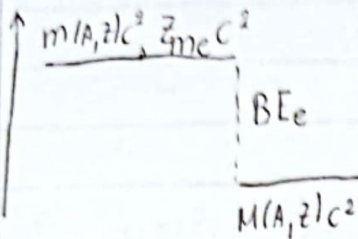 m(A,Z)c², Zmec²
BEe
M(A,Z)c²